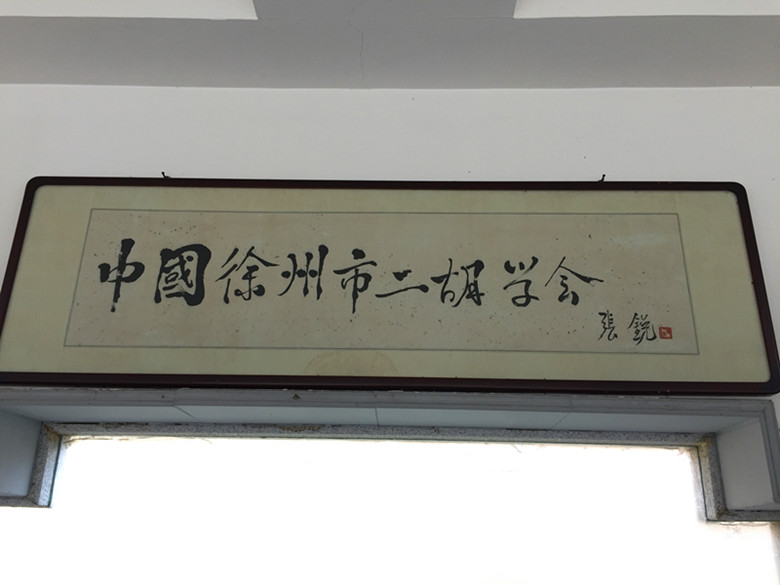 中國徐州市二胡学会
張銳